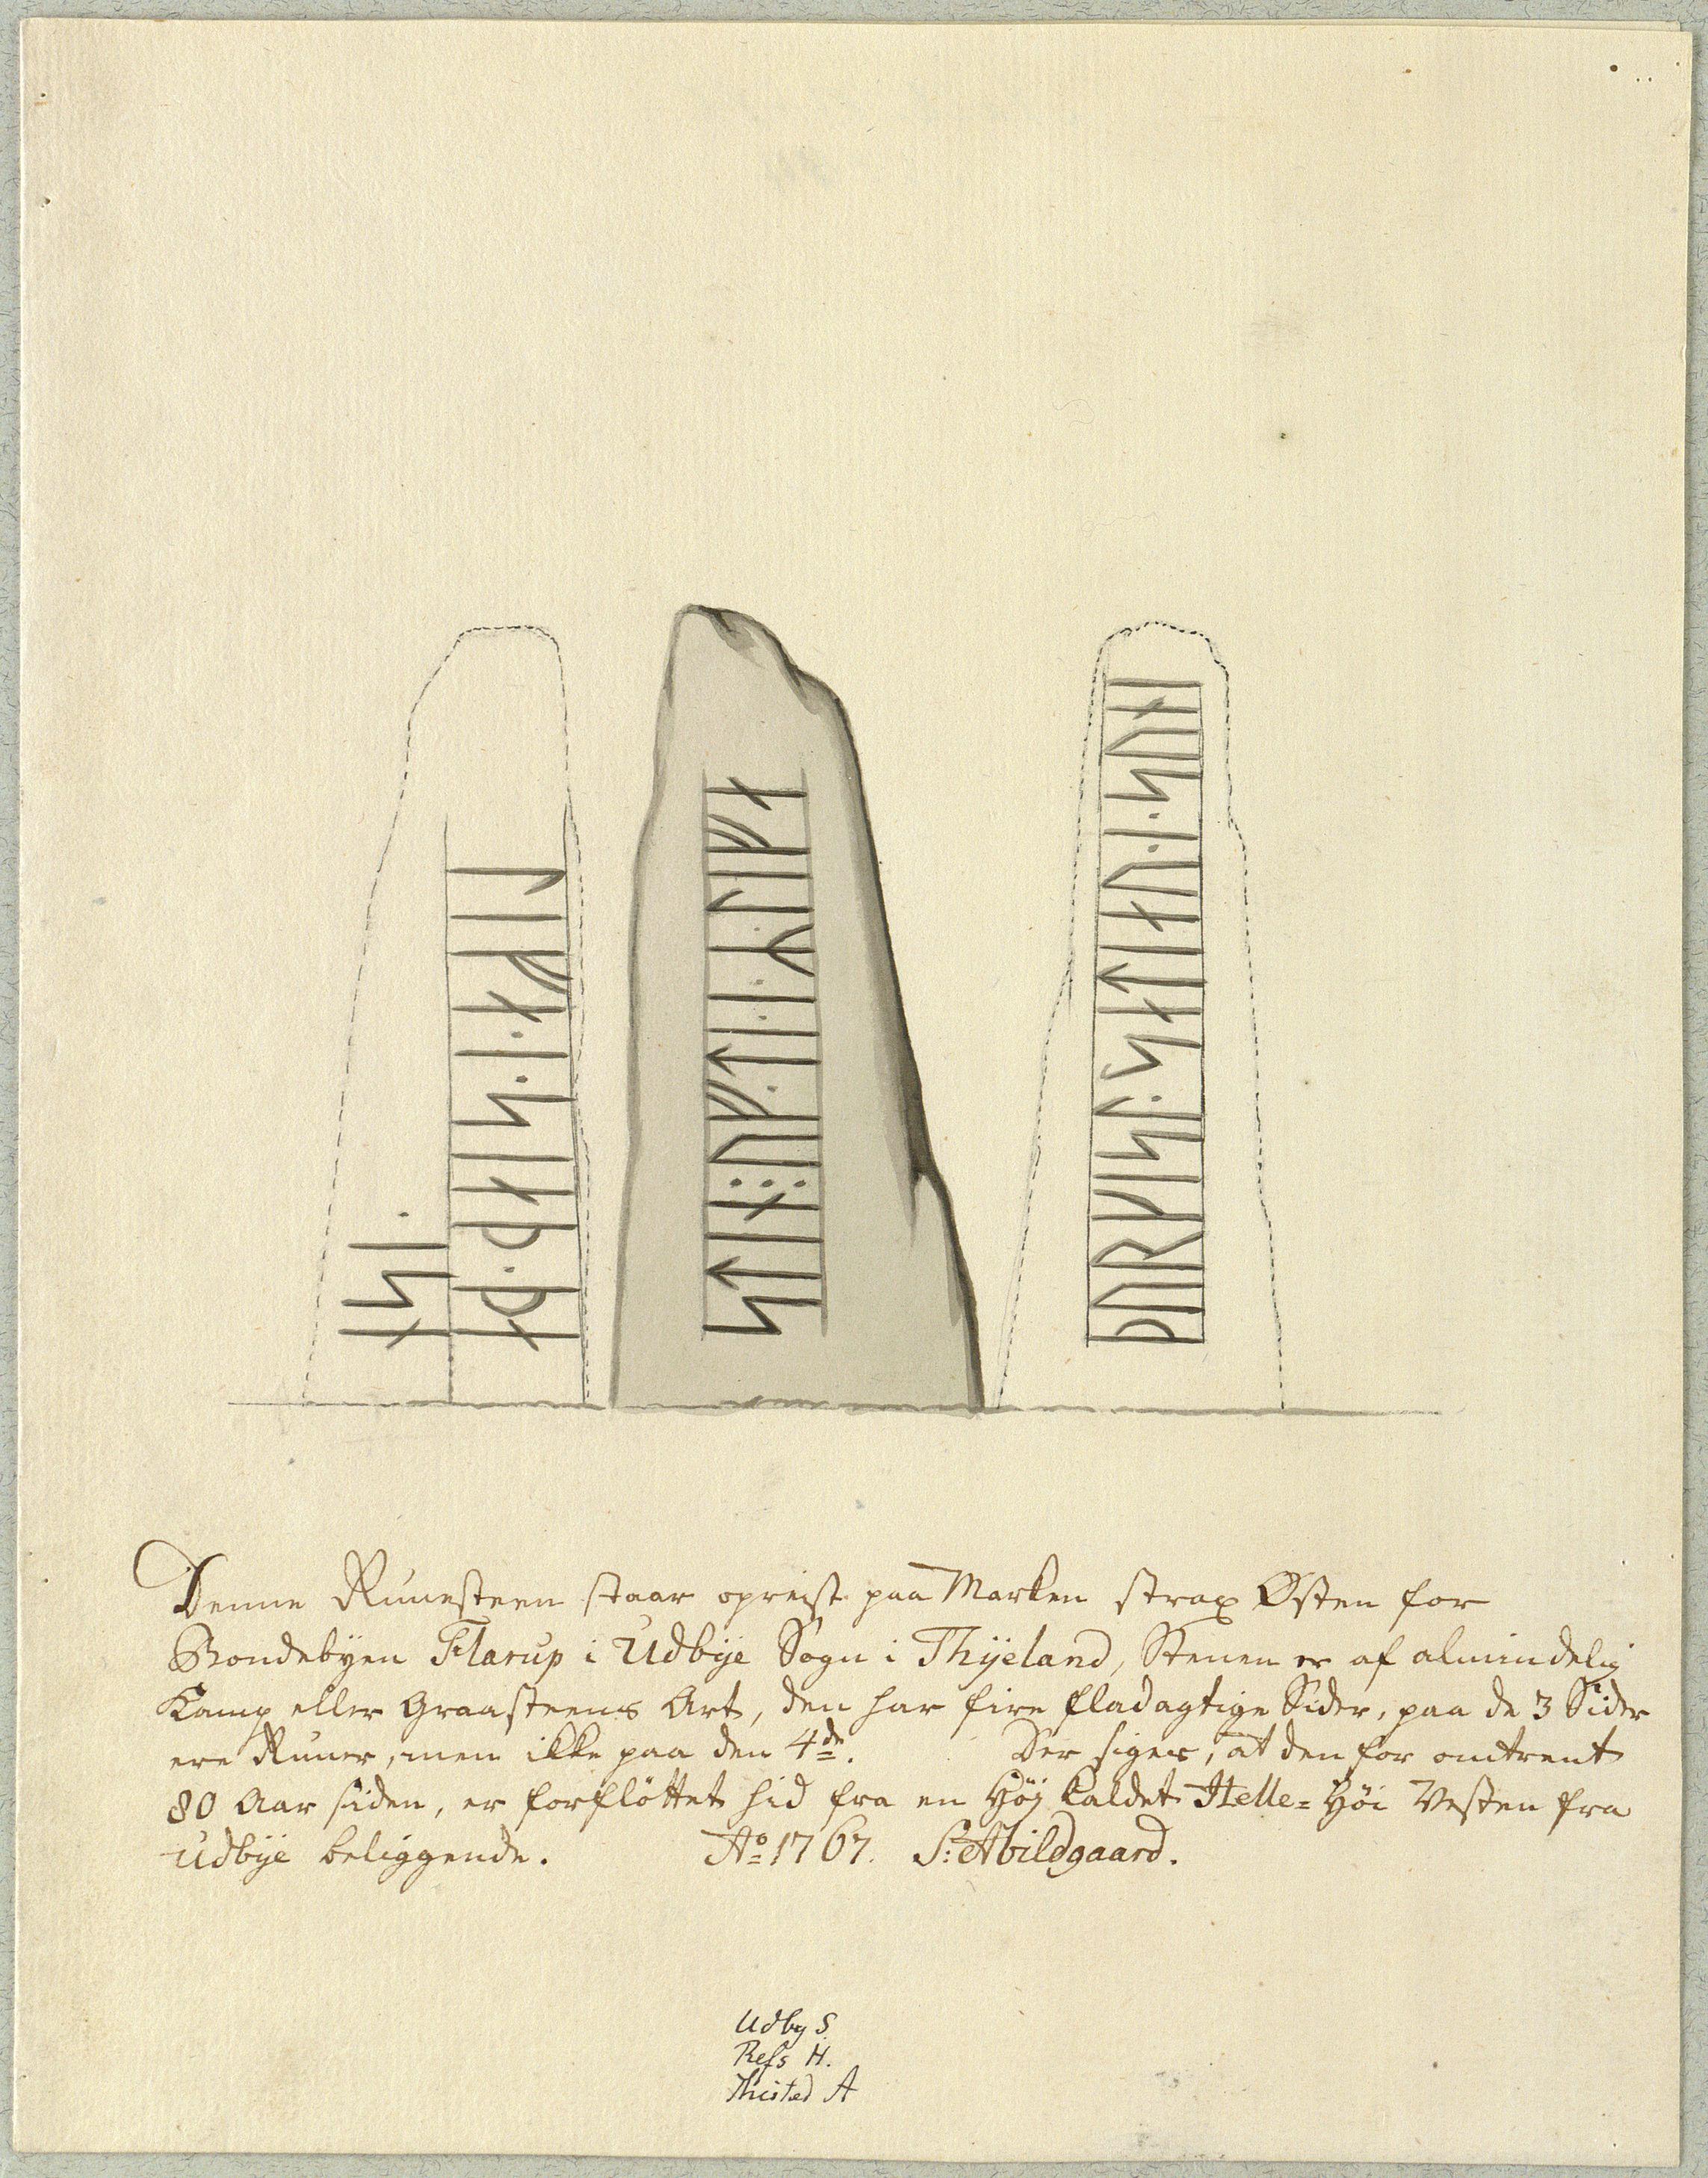 ᛋᛏᛁᚾ
ᚦᚢᚱᚴᛁᛋᛚ
Denne Runesteen staar opreist paa Marken strax Østen for
Bondebyen Flarup i Udbÿe Sogn i Thÿeland, Stenen er af almindelig
Kamp eller Graasteens Art, den har fire fladagtige Sider, paa de 3 Sider
ere Runer, men ikke paa den 4de. Der siges, at den for omtrent
80 Aar siden, er forflöttet hid fra en Höj kaldet Helle=Höi Vesten fra
Udbÿe beliggende. Ao 1767. S: Abildgaard.
Udby S.
Refs H.
Thisted A